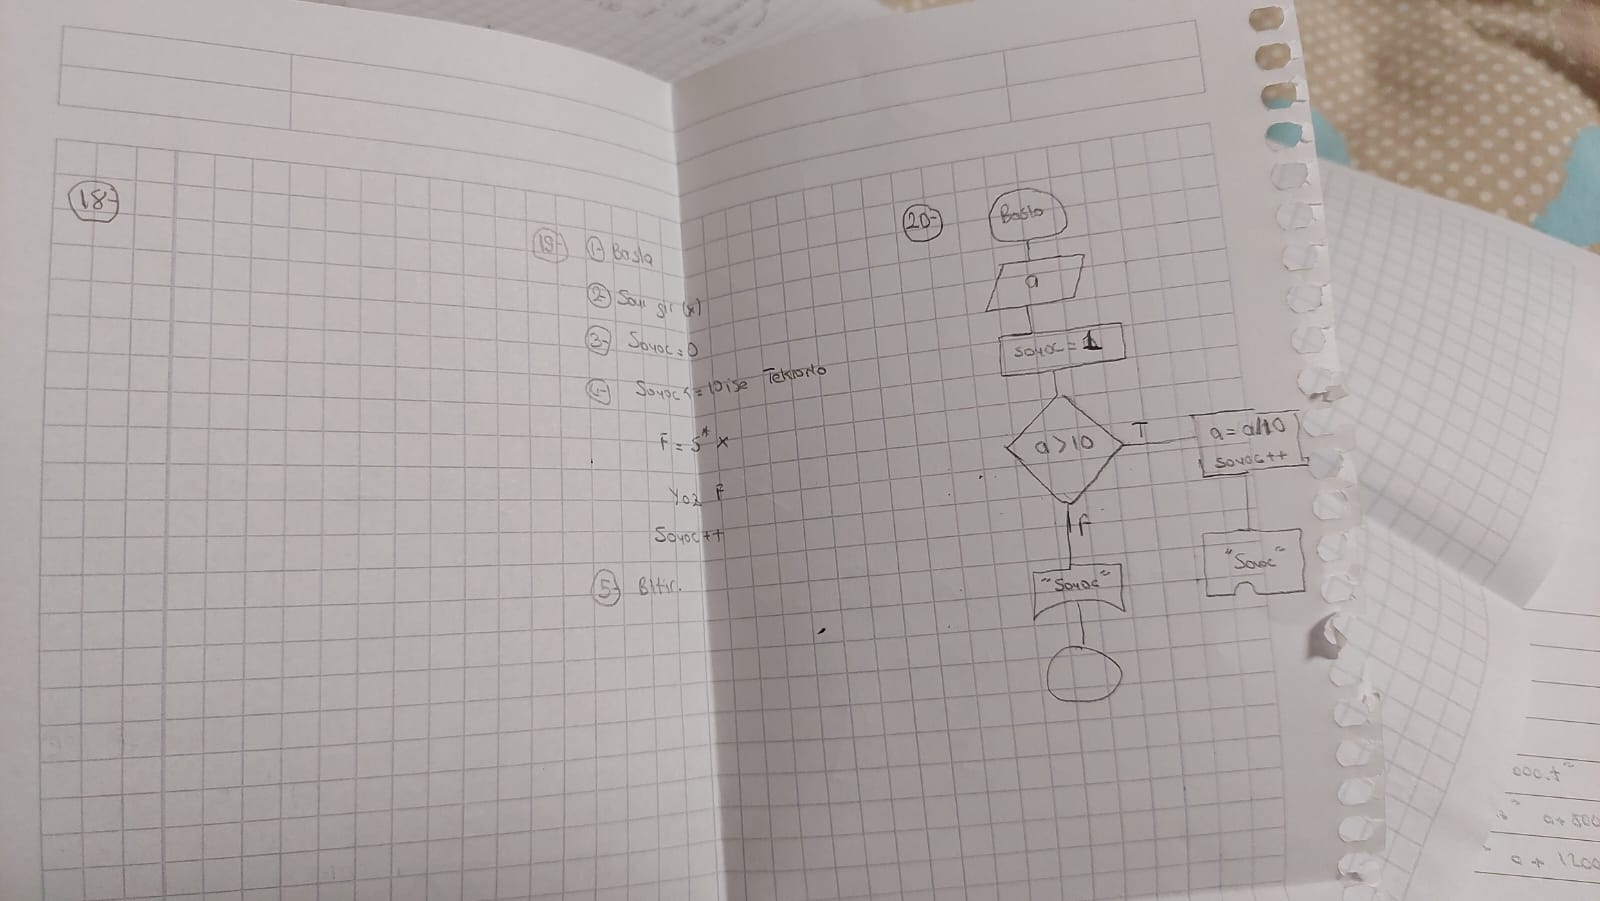 18-
19- 1- Basla
2- Sayı gir (x)
3- Sayac = 0
4- Sayac <= 10 ise Tekrarla
F = 5 * x
Yaz F
Sayac++
5- Bitir.
20-
Basla
a
sayac = 1
a > 10
T
a = a/10
sayac++
F
"Sayac"
"Sayac"
000.t"
a + 500
" a + 1200